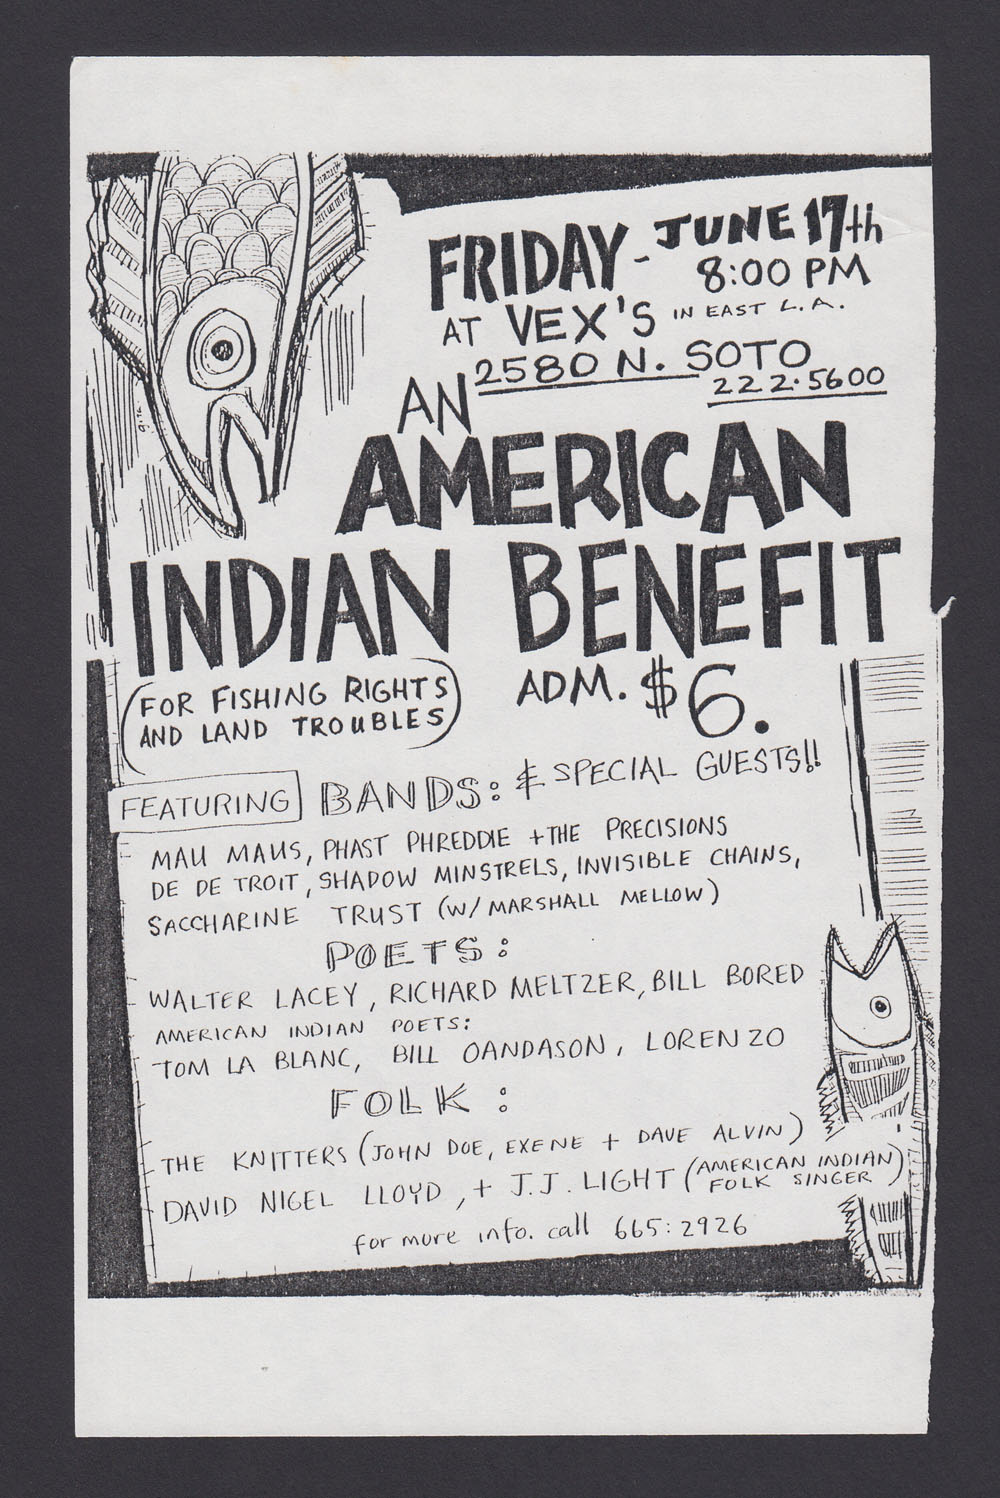 FRIDAY - JUNE 17th
8:00 PM
AT VEX'S IN EAST L.A.
2580 N. SOTO
222·5600
AN
AMERICAN
INDIAN BENEFIT
(FOR FISHING RIGHTS
AND LAND TROUBLES)
ADM. $6.
FEATURING BANDS: & SPECIAL GUESTS!!
MAU MAUS, PHAST PHREDDIE + THE PRECISIONS
DE DE TROIT, SHADOW MINSTRELS, INVISIBLE CHAINS,
SACCHARINE TRUST (W/ MARSHALL MELLOW)
POETS:
WALTER LACEY, RICHARD MELTZER, BILL BORED
AMERICAN INDIAN POETS:
TOM LA BLANC, BILL OANDASON, LORENZO
FOLK:
THE KNITTERS (JOHN DOE, EXENE + DAVE ALVIN)
DAVID NIGEL LLOYD, + J.J. LIGHT (AMERICAN INDIAN
FOLK SINGER)
for more info. call 665:2926